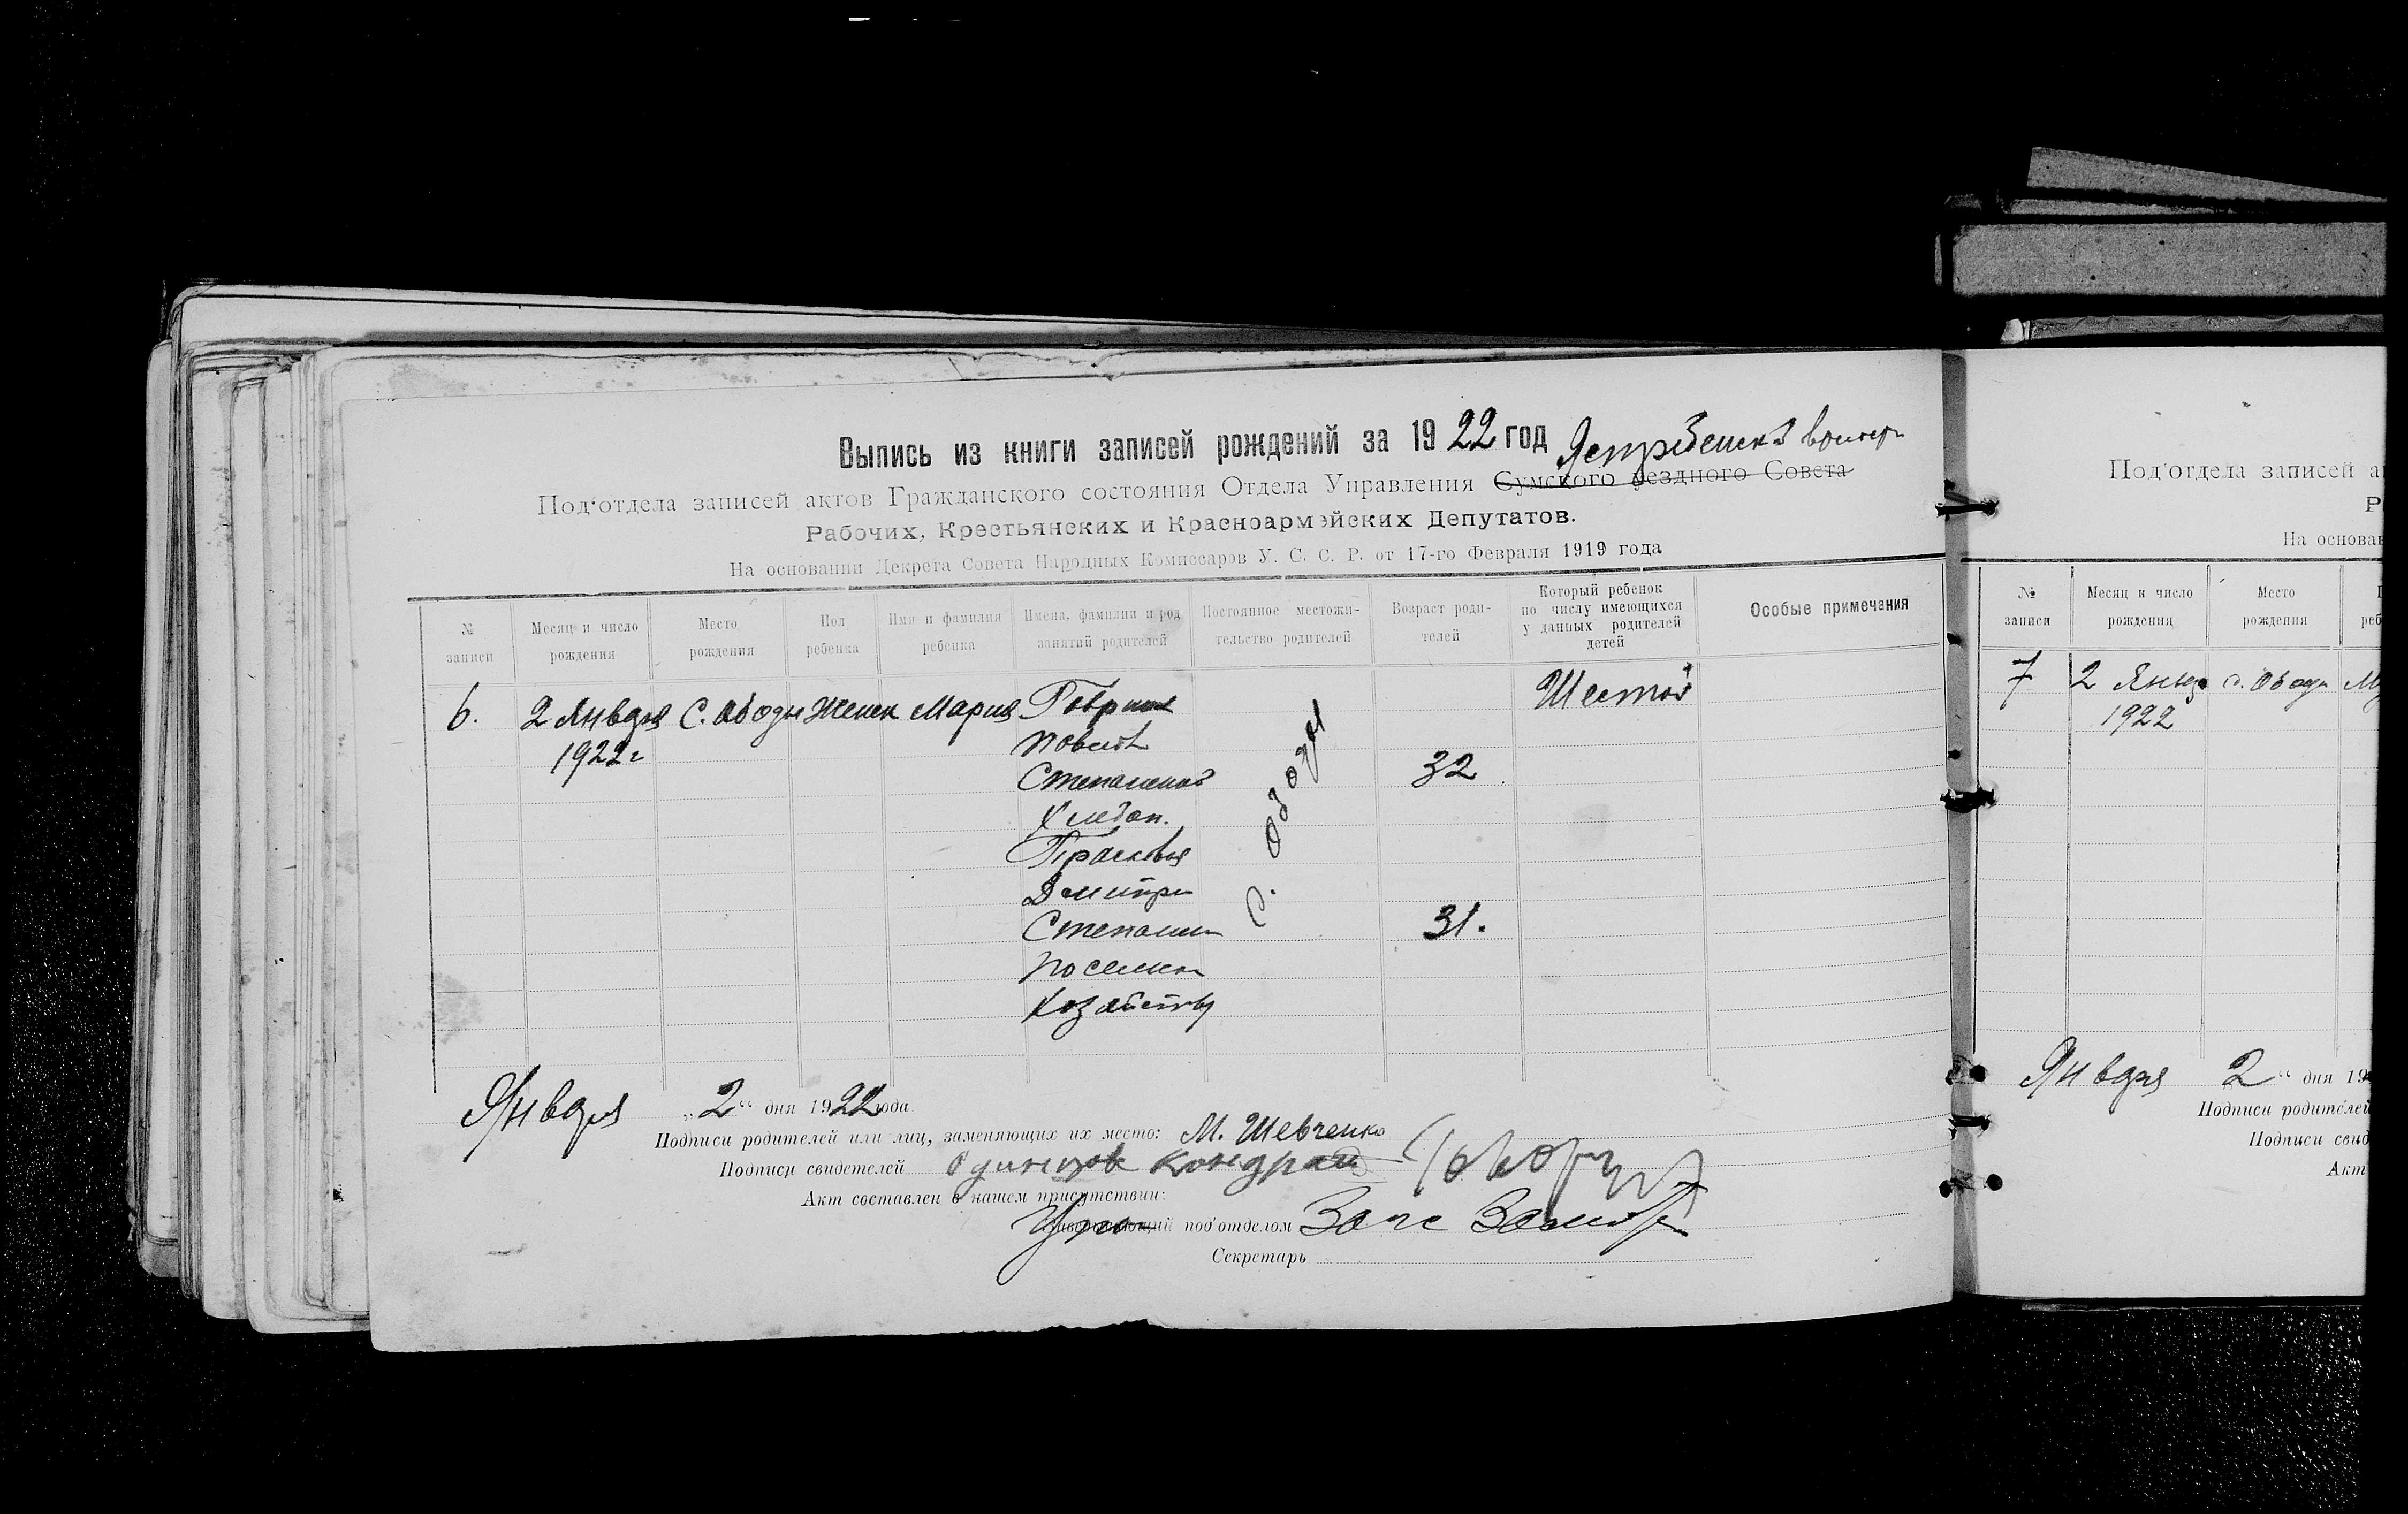 Выпись из книги записей рождений за 1922 год
Под'отдела записей актов Гражданского состояния Отдела Управления Сумского уездного Совета
Рабочих, Крестьянских и Красноармейских Депутатов.
На основании Декрета Совета Народных Комиссаров У. С. С. Р. от 17-го Февраля 1919 года
№ записи
Месяц и число рождения
Место рождения
Пол ребенка
Имя и фамилия ребенка
Имена, фамилии и род занятий родителей
Постоянное местожительство родителей
Возраст родителей
Который ребенок по числу имеющихся у данных родителей детей
Особые примечания
6. 2 Января С. Ободы Женск Мария Шестой
1922 г
32
Хлебоп.
Прасковья
Дмитри
31.
Хозяйству
с. Ободы
Января „2“ дня 1922 года
Подписи родителей или лиц, заменяющих их место: М. Шевченко
Подписи свидетелей Кондрат
Акт составлен в нашем присутствии:
под'отделом
Секретарь
Под'отдела записей а
Р
На основан
№ записи
Месяц и число рождения
Место рождения
реб
7 2 Январ с. Ободы
1922
Января 2“ дня 19
Подписи родителей
Подписи свид
Акт